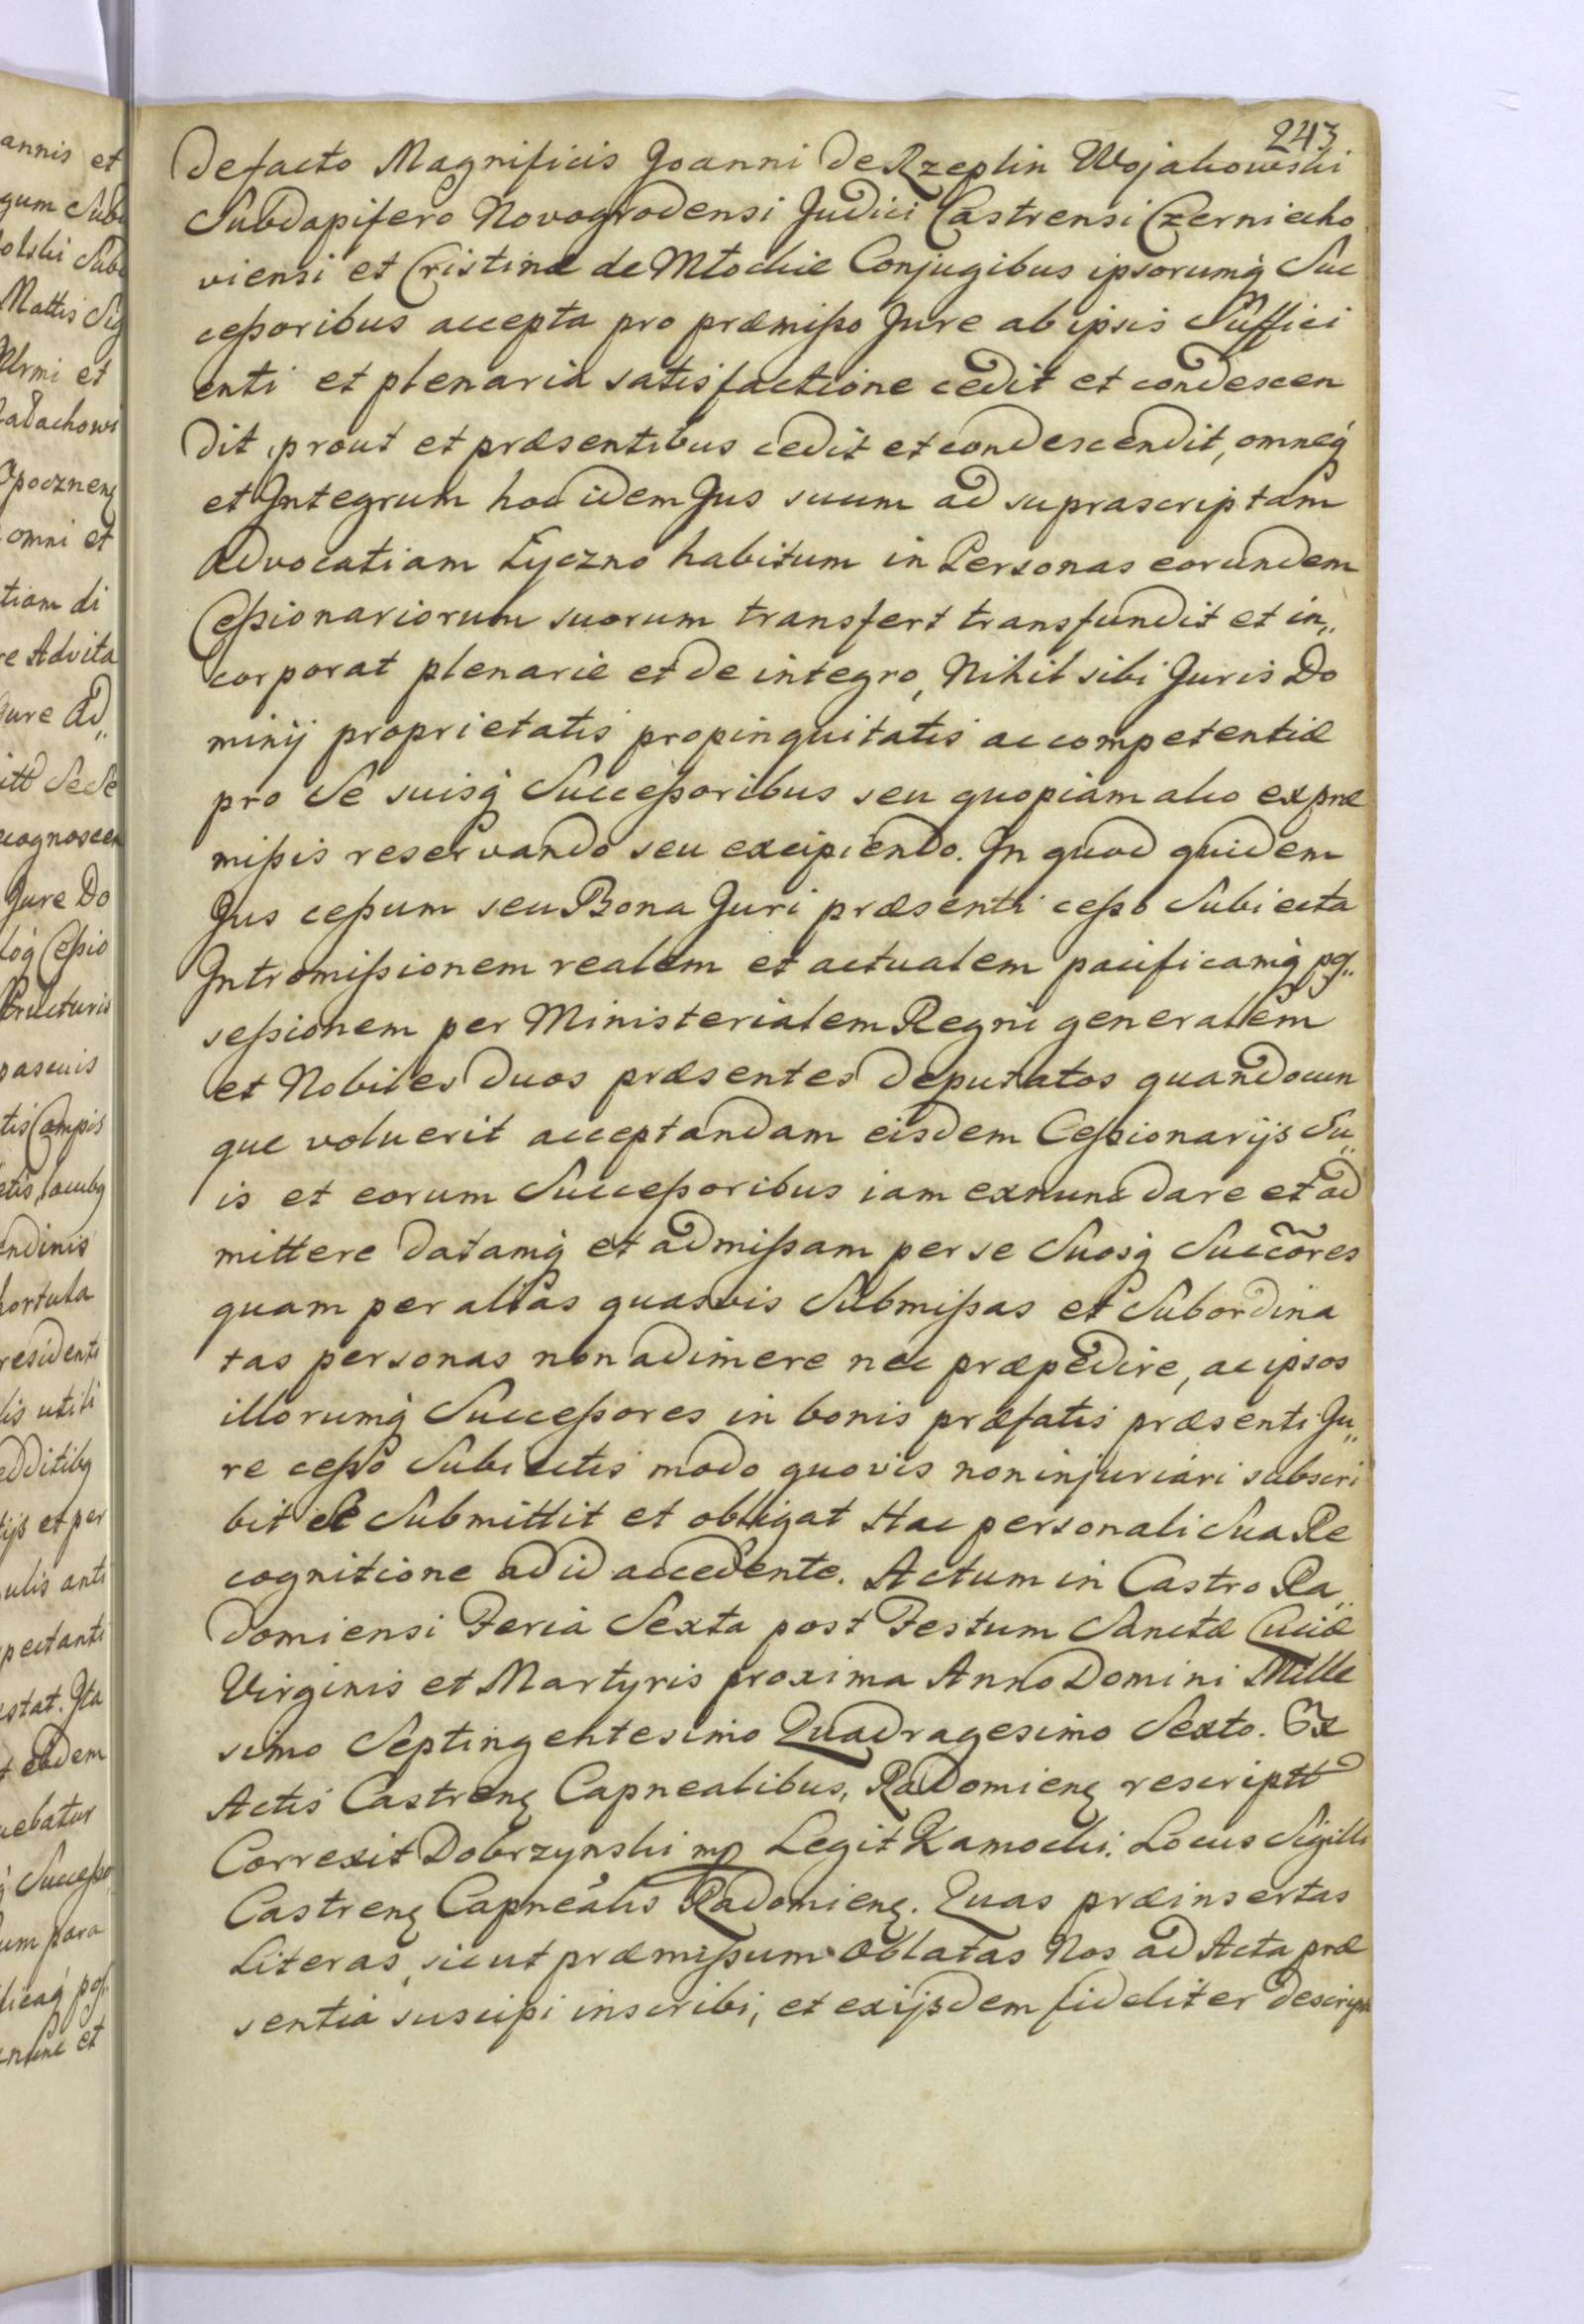 243
defacto Magnificis Joanni de Rzeplin Wojakowski
Subdapifero Novogrodensi Judici Castrensi Czerniecho
viensi et Cristinæ de Młockie Conjugibus ipsorumq́ Suc
ceßoribus accepta pro præmißo Jure ab ipsis Suffici
enti et plenaria satisfactione cedit et condescen
dit, prout et præsentibus cedit et condescendit, omneq́
et Integrum hoc idem Jus suum ad suprascriptam
Advocatiam Łyczno habitum in Personas eorundem
Ceßionariorum suorum transfert transfundit et in„
corporat plenarie et de integro, Nihil sibi Juris Do
minij proprietatis propinquitatis ac competentiæ
pro Se suisq́ Succeßoribus seu quopiam alio ex præ
mißis reservando seu excipiendo. In quod quidem
Jus ceßum seu Bona Juri præsenti ceßo Subiecta
Intromißionem realem et actualem pacificamq́ poß„
seßionem per Ministerialem Regni generalem
et Nobiles duos præsentes deputatos quandocun
que voluerit acceptandam eisdem Ceßionarijs Su„
is et eorum Succeßoribus iam exnunc dare et ad
mittere datamq́ et admißam per se Suosq́ Succõres
quam per alias quasvis Submißas et Subordina
tas personas non adimere nec præpedire, ac ipsos
illorumq́ Succeßores in bonis præfatis præsenti Ju„
re ceßo Subiectis modo quovis non injuriari subscri
bit et Submittit et obligat Hac personali Sua Re
cognitione ad id accedente. Actum in Castro Ra„
domiensi Feria Sexta post Festum Sanctæ Luciæ
Virginis et Martyris proxima Anno Domini Mille
simo Septingentesimo Quadragesimo Sexto. Ex
Actis Castren̨ Capnealibus, Radomien̨ rescriptt
Correxit Dobrzynski mp Legit Kamocki. Locus Sigilli
Castren̨ Capnealis Radomien̨. Quas præinsertas
Literas, sicut præmißum oblatas Nos ad Acta præ
sentia suscipi inscribi, et exijsdem fideliter descripti